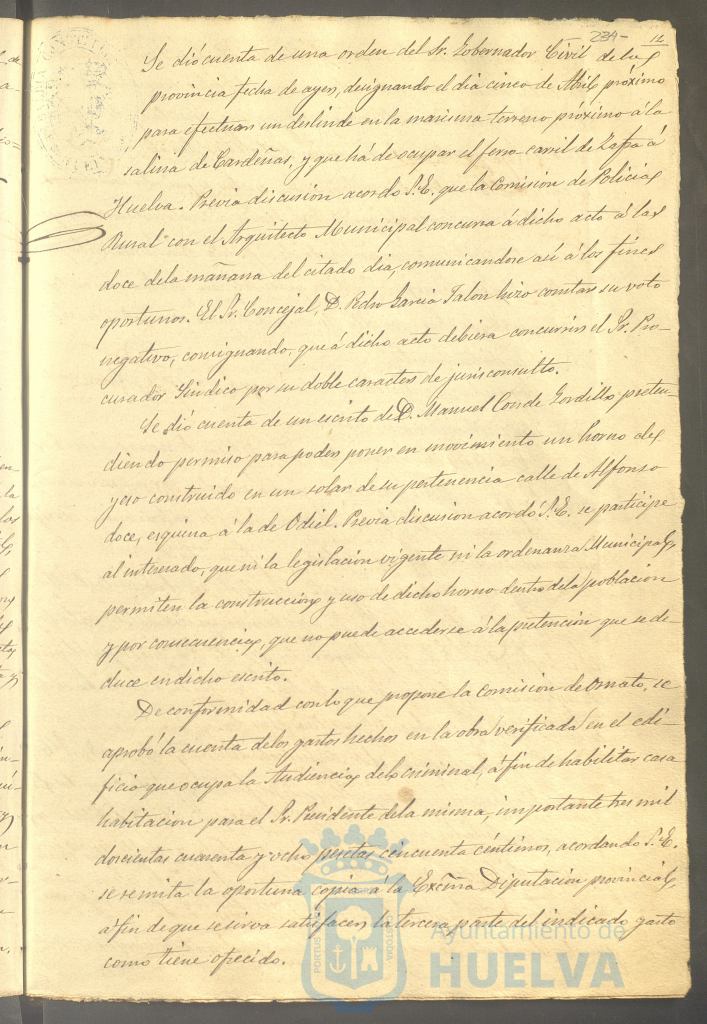 234- 12
Se dió cuenta de una orden del Sr. Gobernador Civil de la
provincia fecha de ayer, designando el dia cinco de Abril próximo
para efectuar un deslinde en la marisma terreno próximo á la
salina de Cardeñas, y que há de ocupar el ferro-carril de Zafra á
Huelva. Previa discusion acordó S.E. que la Comision de Policia
Rural con el Arquitecto Municipal concurra á dicho acto á las
doce de la mañana del citado dia, comunicandose asi á los fines
oportunos. El Sr. Concejal, D. Pedro Garcia Talon hizo constar su voto
negativo, consignando, que á dicho acto debiera concurrir el Sr. Pro-
curador Sindico por su doble caracter de jurisconsulto.
Se dió cuenta de un escrito de D. Manuel Conde Gordillo preten-
diendo permiso para poder poner en movimiento un horno de
yeso construido en un solar de su pertenencia calle de Alfonso
doce, esquina á la de Odiel. Previa discusion acordó S.E. se participe
al interesado, que ni la legislación vigente ni la ordenanza Municipal,
permiten la construccion y uso de dicho horno dentro de la poblacion
y por consecuencia, que no puede accederse á la pretención que se de-
duce en dicho escrito.
De conformidad con lo que propone la Comision de Ornato, se
aprobó la cuenta de los gastos hechos en la obra verificada en el edi-
ficio que ocupa la Audiencia de lo criminal, á fin de habilitar casa
habitacion para el Sr. Presidente de la misma, importante tres mil
doscientas cuarenta y ocho pesetas cincuenta céntimos, acordando S.E.
se remita la oportuna copia á la Excma Diputacion provincial,
á fin de que se sirva satisfacer la tercera parte del indicado gasto
como tiene ofrecido.
Ayuntamiento de
HUELVA
PORTUS